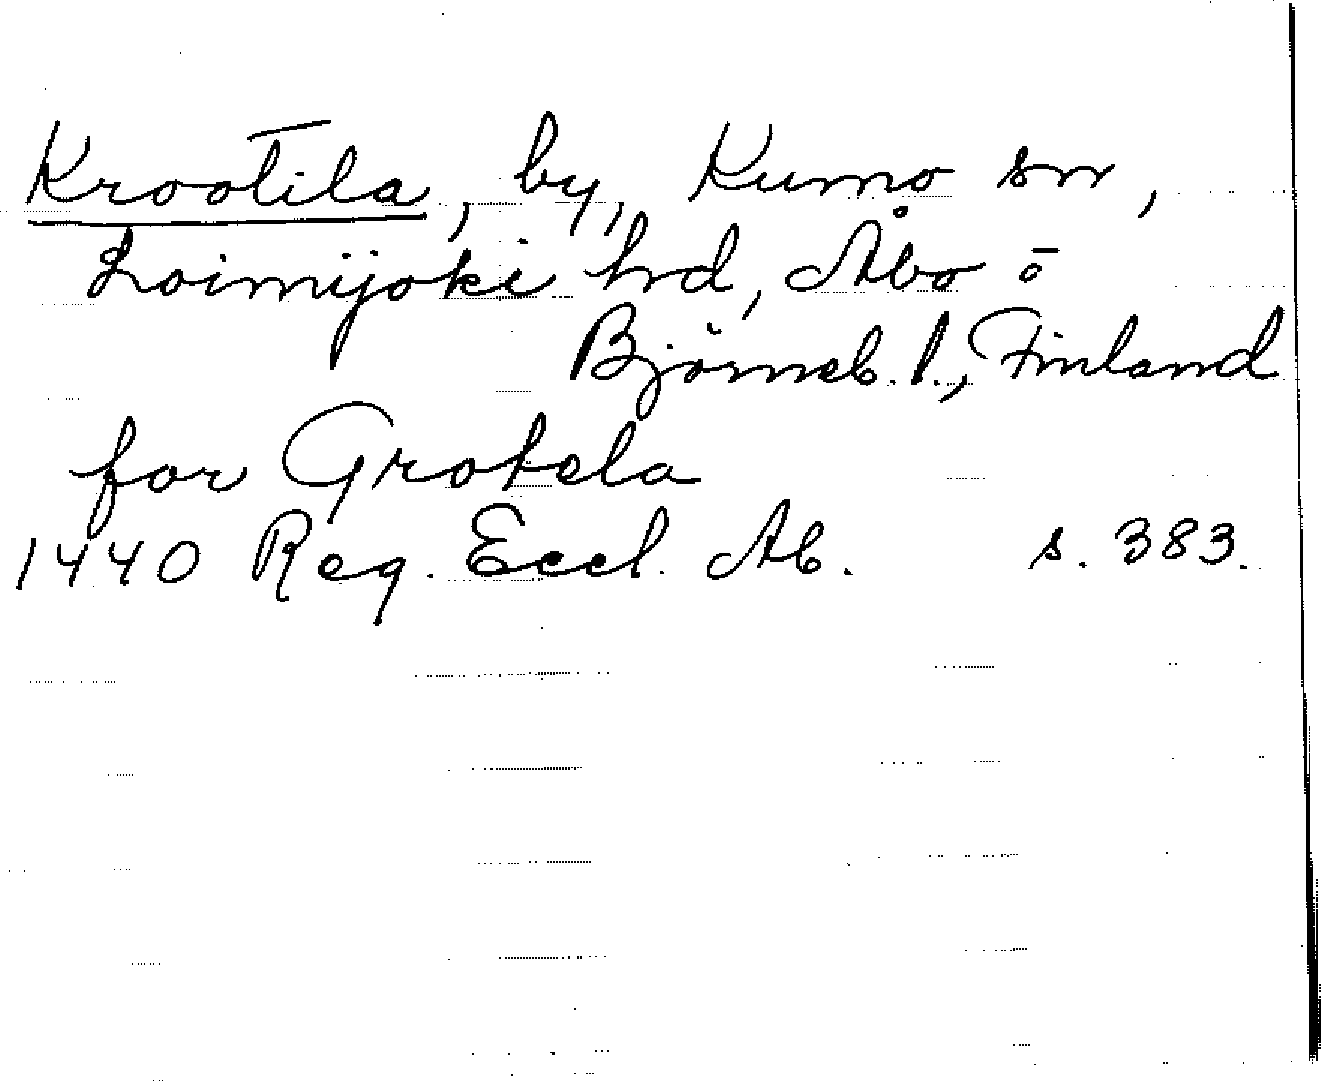 Krootila, by, Kumo sn,
Loimijoki hrd, Åbo o
Björneb. l., Finland
for Grotela
1440 Reg. Eccl. Ab. s. 383.